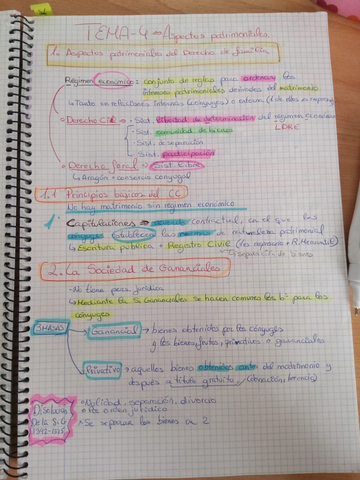 TEMA-4 → Aspectos patrimoniales
1. Aspectos patrimoniales del Derecho de familia
Régimen económico = conjunto de reglas para ordenar los
intereses patrimoniales derivados del matrimonio
↳ Tanto en relaciones internas (cónyuges) o externas (1 de ellos es empresario)
○ Derecho CIVIL → - Sist. libertad de determinación del régimen económico
LDRE
- Sist. comunidad de bienes
- Sist. de separación
- Sist. participación
○ Derecho foral → Sist. libre
↳ Aragón = consorcio conyugal
1.1 Principios básicos del CC
No hay matrimonio sin régimen económico
Capitulaciones → contractual, en el que los
cónyuges establecen las normas de naturaleza patrimonial
↳ Escritura pública + Registro Civil (Si empresario + R. Mercantil)
Separación de bienes
2. La Sociedad de Gananciales
- No tiene pers. jurídica
↳ Mediante la S. Gananciales se hacen comunes los b. para los
cónyuges
3 MASAS
Ganancial → bienes obtenidos por los cónyuges
y los bienes, frutos, privativos o gananciales
Privativo → aquellos bienes obtenidos antes del matrimonio y
después a título gratuito (donación, herencia)
Disolución
De la S.G
1392-1395
• Nulidad, separación, divorcio
jurídico
• Se separan los bienes en 2